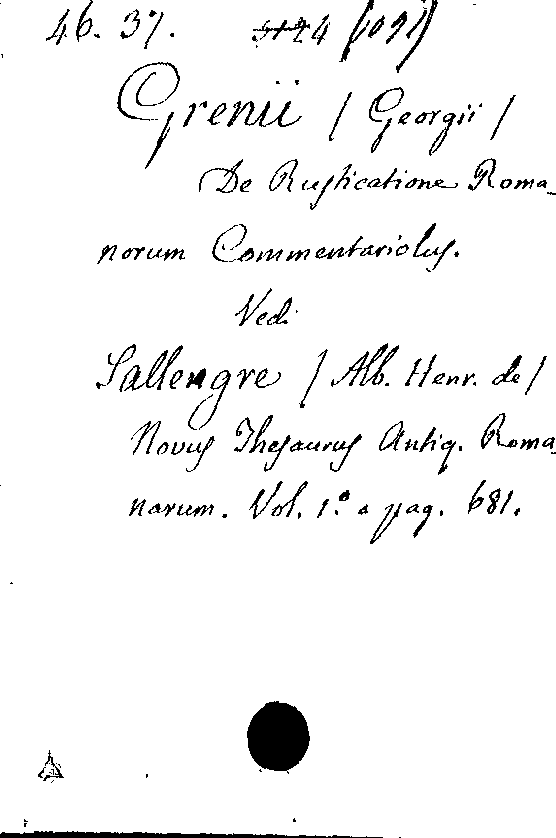 46. 37. 3124 (091)
Grenii / Georgii /
De Rusticatione Roma-
norum Commentariolus.
Vedi
Sallengre / Alb. Henr. de /
Novus Thesaurus Antiq. Roma
narum. Vol. 1.º a pag. 681.